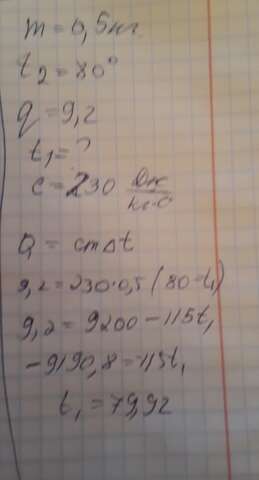 m = 0,5кг
t₂ = 80°
q = 9,2
t₁ = ?
c = 230 Дж/кг·C
Q = cm∆t
9,2 = 230·0,5(80-t₁)
9,2 = 9200 - 115t₁
-9190,8 = -115t₁
t₁ = 79,92